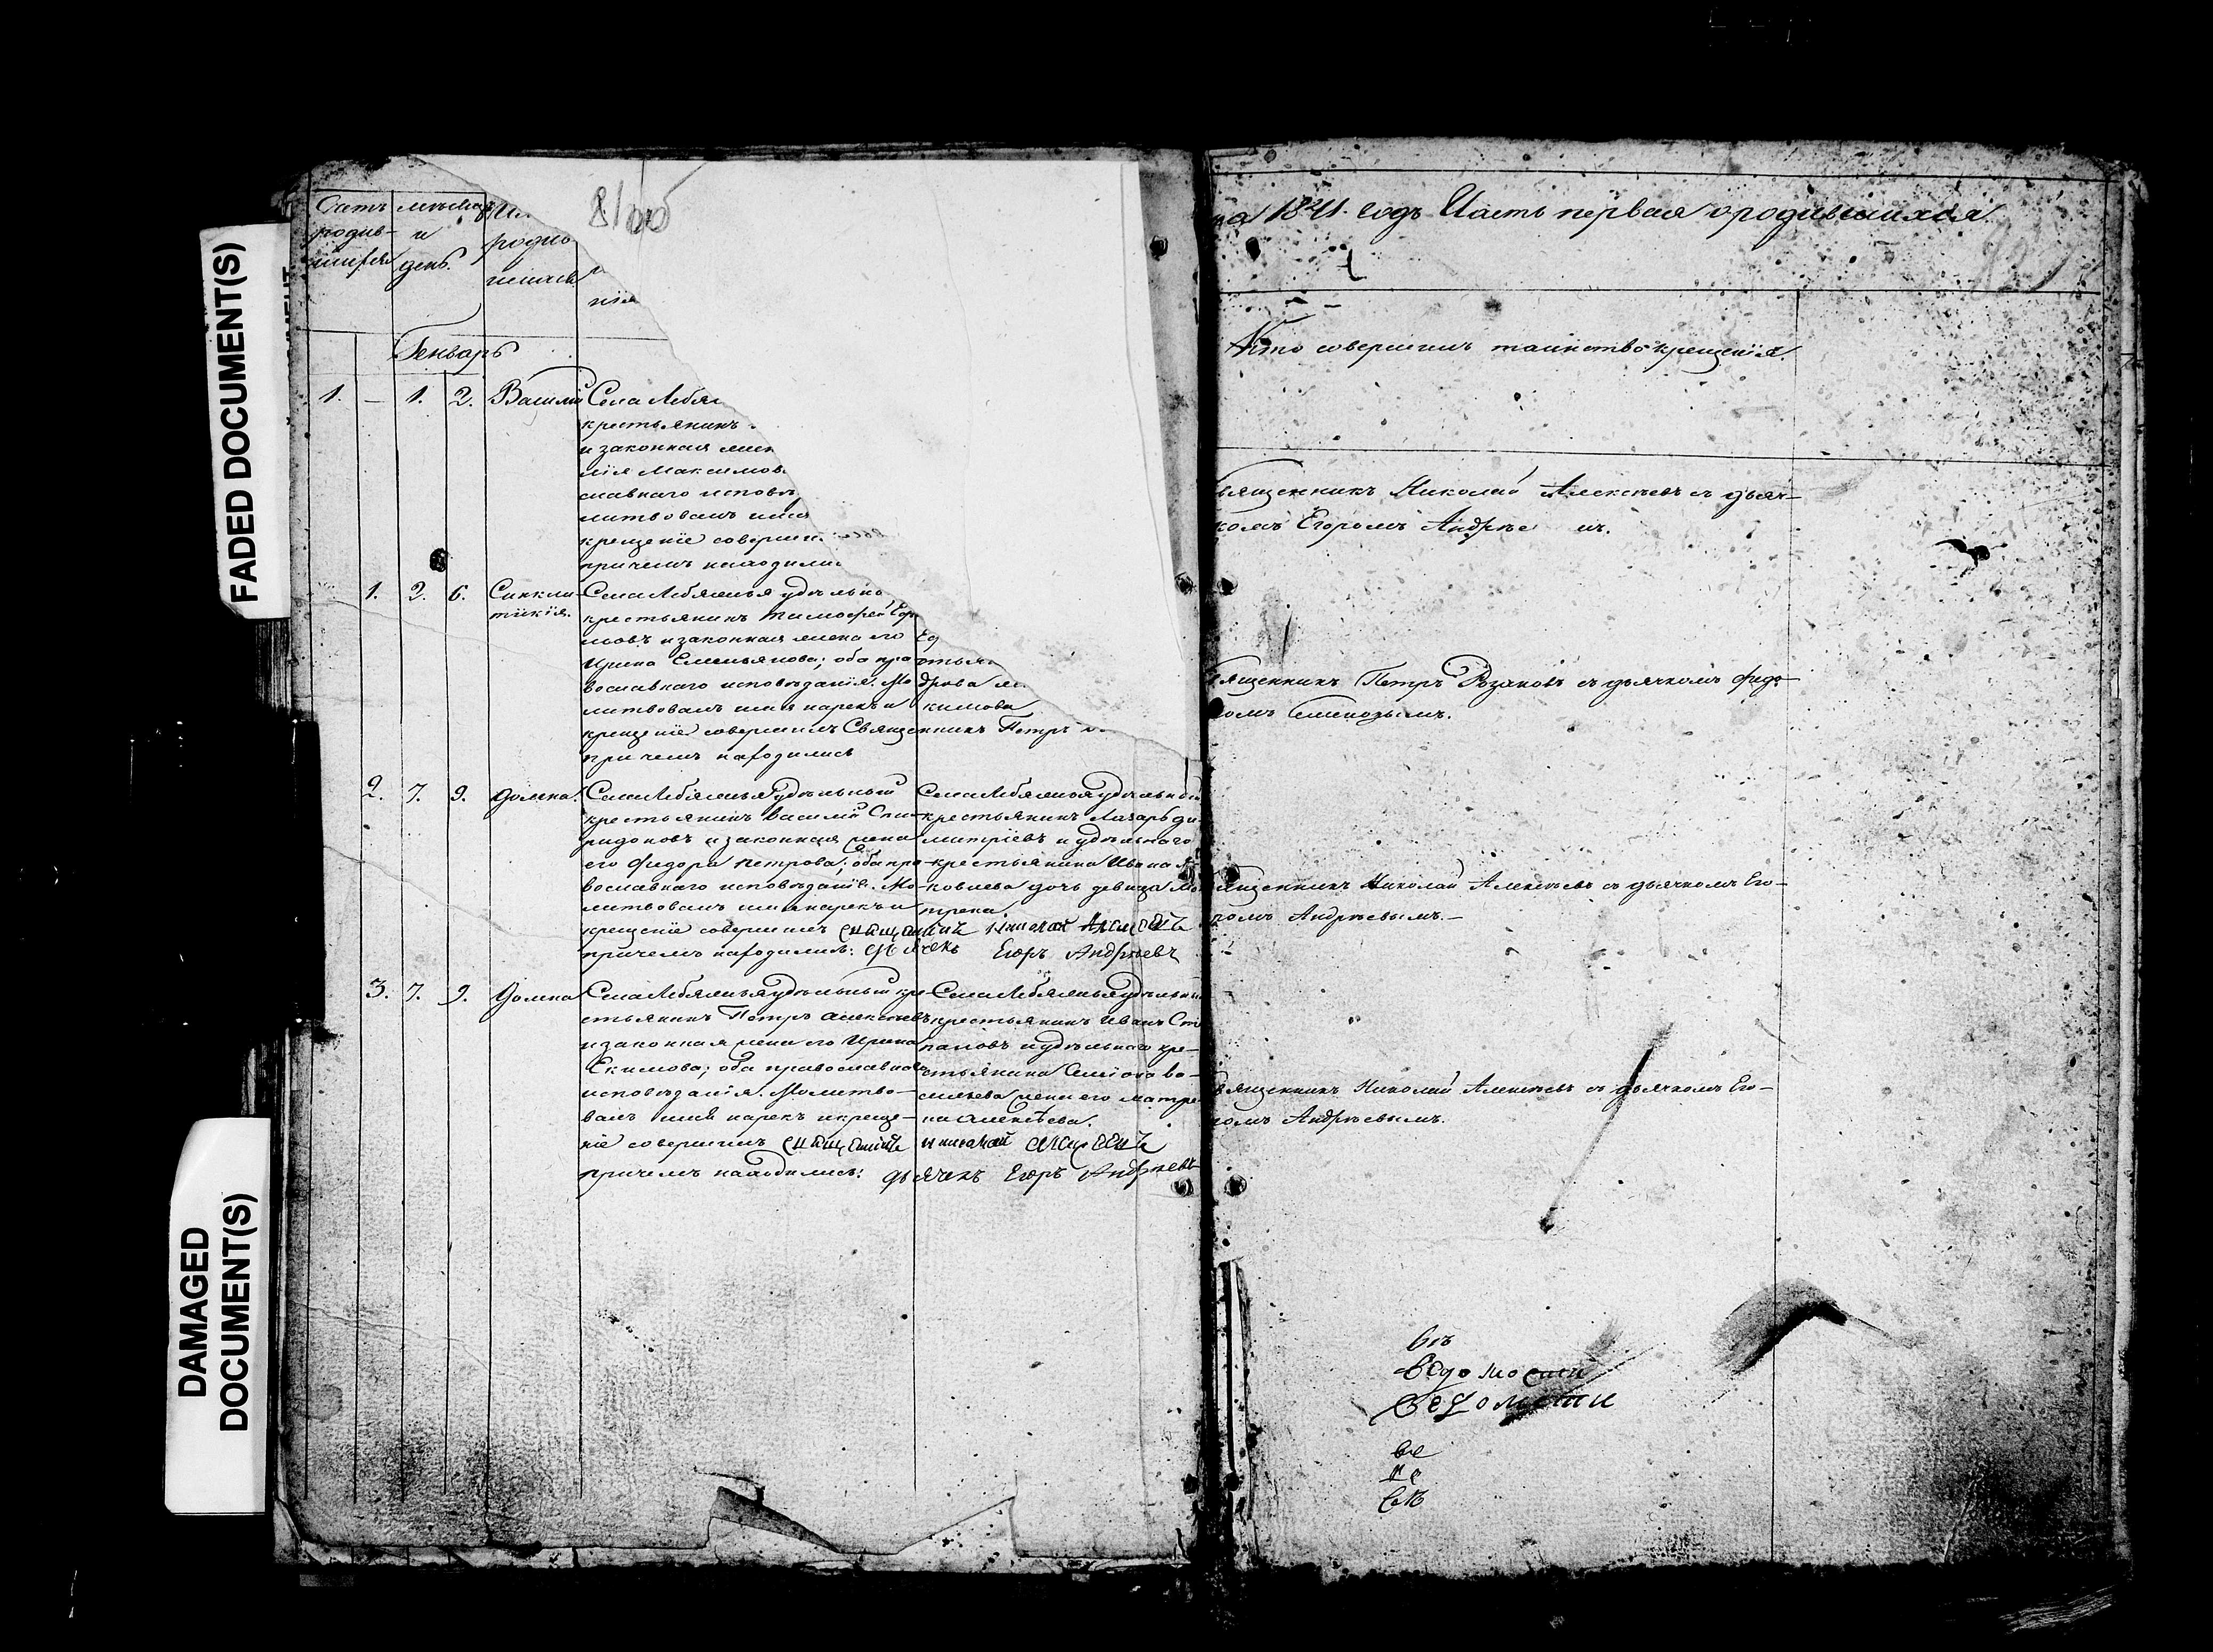 FADED DOCUMENT(S)
DAMAGED
DOCUMENT(S)
Счетъ
родив-
шихся
мѣсяцъ
и
день.
родив
шихся
Генварь
1. — 1. 2. Василій
Села Лебяж
крестьянинъ
и законная жен
Максимов
славнаго исповѣ
литвовалъ имя
крещеніе соверши
причемъ находилис
1. 2. 6. Синкли-
тикія.
Села Лебяжья удѣльно
крестьянинъ Тимофей Ефи
мовъ и законная жена его
Ирина Емельянова; оба пра
вославнаго исповѣданія. Мо
литвовалъ имя нарекъ и
крещеніе совершилъ Священникъ Петръ
причемъ находились
Ед
стьян
дрова
кимова
2. 7. 9. Домна.
Села Лебяжья удѣльный
крестьянинъ Василій Спи-
ридоновъ и законная жена
его Федора Петрова; оба пра-
вославнаго исповѣданія. Мо-
литвовалъ имя нарекъ и
крещеніе совершилъ Священникъ Николай Алексѣевъ
причемъ находились: дьячекъ Егоръ Андрѣевъ
Села Лебяжья удѣльный
крестьянинъ Лазарь Ди
митріевъ и удѣльнаго
крестьянина Ивана
ковлева дочь девица Ма
трена.
3. 7. 9. Домна
Села Лебяжья удѣльный кре-
стьянинъ Петръ Алексѣевъ
и законная жена его Ирина
Екимова; оба православнаго
исповѣданія. Молитво-
валъ имя нарекъ и креще-
ніе совершилъ Священникъ Николай Алексѣевъ
причемъ находились: дьячекъ Егоръ Андрѣевъ
Села Лебяжья удѣльный
крестьянинъ Иванъ Сте
пановъ и удѣльнаго кре-
стьянина Семіона Ва-
сильева жена его Матре
на Алексѣева.
на 1841. годъ Часть первая о родившихся.
Кто совершилъ таинство крещенія.
вященникъ Николай Алексѣевъ съ дьяч-
комъ Егоромъ Андрѣе мъ.
вященникъ Петръ Розановъ съ дьячкомъ Федо
ромъ Семеновымъ.
вященникъ Николай Алексѣевъ съ дьячкомъ Его-
ромъ Андрѣевымъ.—
вященникъ Николай Алексѣевъ съ дьячкомъ Его-
ромъ Андрѣевымъ.
ведомости
ведомости